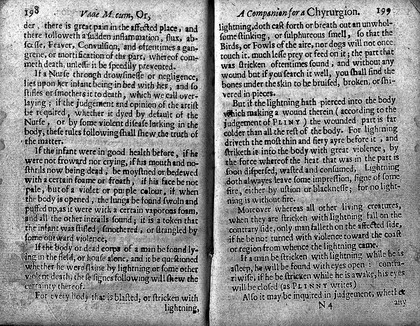 198 Vade Mecum, Or,
der. there is great pain in the affected place, and
there followeth a sudden inflammation, flux, ab-
scesse, Feaver, Convulsion, and oftentimes a gan-
grene, or mortification of the part, whereof com-
meth death, unlesse it be speedily prevented.
If a Nurse through drowsinesse or negligence,
lies upon her infant being in bed with her, and so
stifles or smothers it to death, which we call over-
laying; if the judgement and opinion of the artist
be required, whether it dyed by default of the
Nurse, or by some violent disease lurking in the
body, these rules following shall shew the truth of
the matter.
If the infant were in good health before, if he
were not froward nor crying, if his mouth and no-
sthrils now being dead, be moystned or bedewed
with a certain foame or froath, if his face be not
pale, but of a violet or purple colour, if when
the body is opened, the lungs be found swoln and
puffed up, as it were with a certain vaporous foam,
and all the other intrails sound; it is a token that
the infant was stifled, smothered, or strangled by
some outward violence.
If the body or dead corps of a man be found ly-
ing in the field, or house alone, and it be questioned
whether he were slain by lightning or some other
violent death; these signes following will shew the
certainty thereof.
For every body that is blasted, or stricken with
lightning,
A Companion for a Chyrurgion. 199
lightning, doth cast forth or breath out an unwhol-
some stinking, or sulphureous smell, so that the
Birds, or Fowls of the aire, nor dogs will not once
touch it. much lesse prey or feed on it; the part that
was stricken oftentimes sound, and without any
wound but if you search it well, you shall find the
bones under the skin to be bruised, broken, or shi-
vered in pieces.
But if the lightning hath pierced into the body
which making a wound therein (according to the
judgement of PLINY) the wounded part is far
colder than all the rest of the body. For lightning
driveth the most thin and fiery ayre before it, and
striketh is into the body with great violence, by
the force whereof the heat that was in the part is
soon dispersed, wasted and consumed. Lightning
doth alwayes leave some impression, signe of some
fire, either by ustion or blacknesse; for no light-
ning is without fire.
Moreover whereas all other living creatures,
when they are stricken with lightning fall on the
contrary side, only man falleth on the affected side,
if he be not turned with violence toward the coast
or region from whence the lightning came.
If a man be stricken with lightning while he is
asleep, he will be found with eyes open: contra-
riwise, if he be stricken while he is awake, his eyes
will be closed (as PLINY writes)
Also it may be inquired in judgement, whether
N 4 any